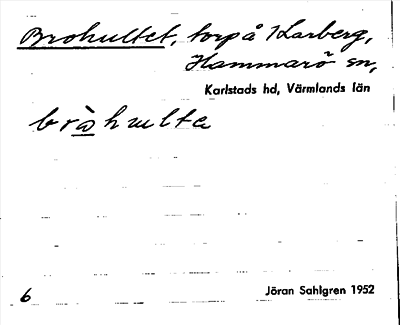 Brohultet, torp å 1 Larberg,
Hammarö sn,
Karlstads hd, Värmlands län
bròhulta
6
Jöran Sahlgren 1952